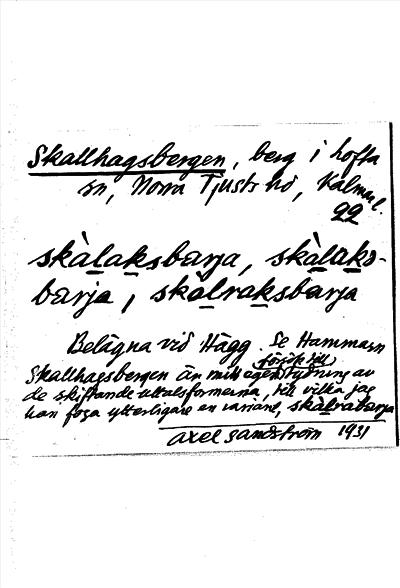 Skallhagsbergen, berg i Lofta
sn, Norra Tjusts hd, Kalmar l.
22
skàlaksbarja, skàlaks-
barja, skàlraksbarja
Belägna vid Hägg. Se Hammarn
Skallhagsbergen är mitt eget försök till tydning av
de skiftande uttalsformerna, till vilka jag
kan foga ytterligare en variant, skàlrabarja
Axel Sandström 1931